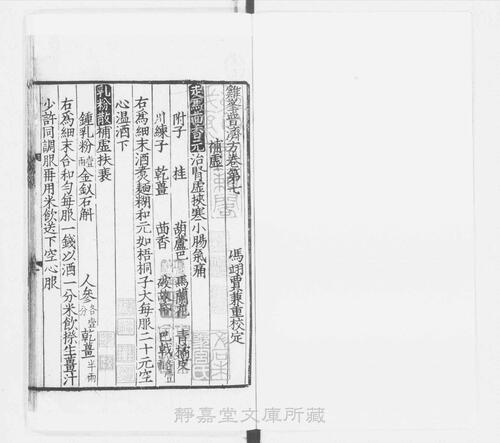 雞峯普濟方卷第七
馮翊賈兼重校定
補虛
茴香元治腎虛挾寒小腸氣痛
附子 桂 葫蘆巴 馬蘭花 青橘皮
川練子 乾薑 茴香 破故紙 巴戟
右為細末酒煑麵糊和元如梧桐子大每服二十元空
心温酒下
乳粉散補虛扶衰
鍾乳粉壹兩 金釵石斛 人參各壹分 乾薑半兩
右為細末合和勻每服一錢以酒一分米飲搽生薑汁
少許同調服再用米飲送下空心服
靜嘉堂文庫所藏